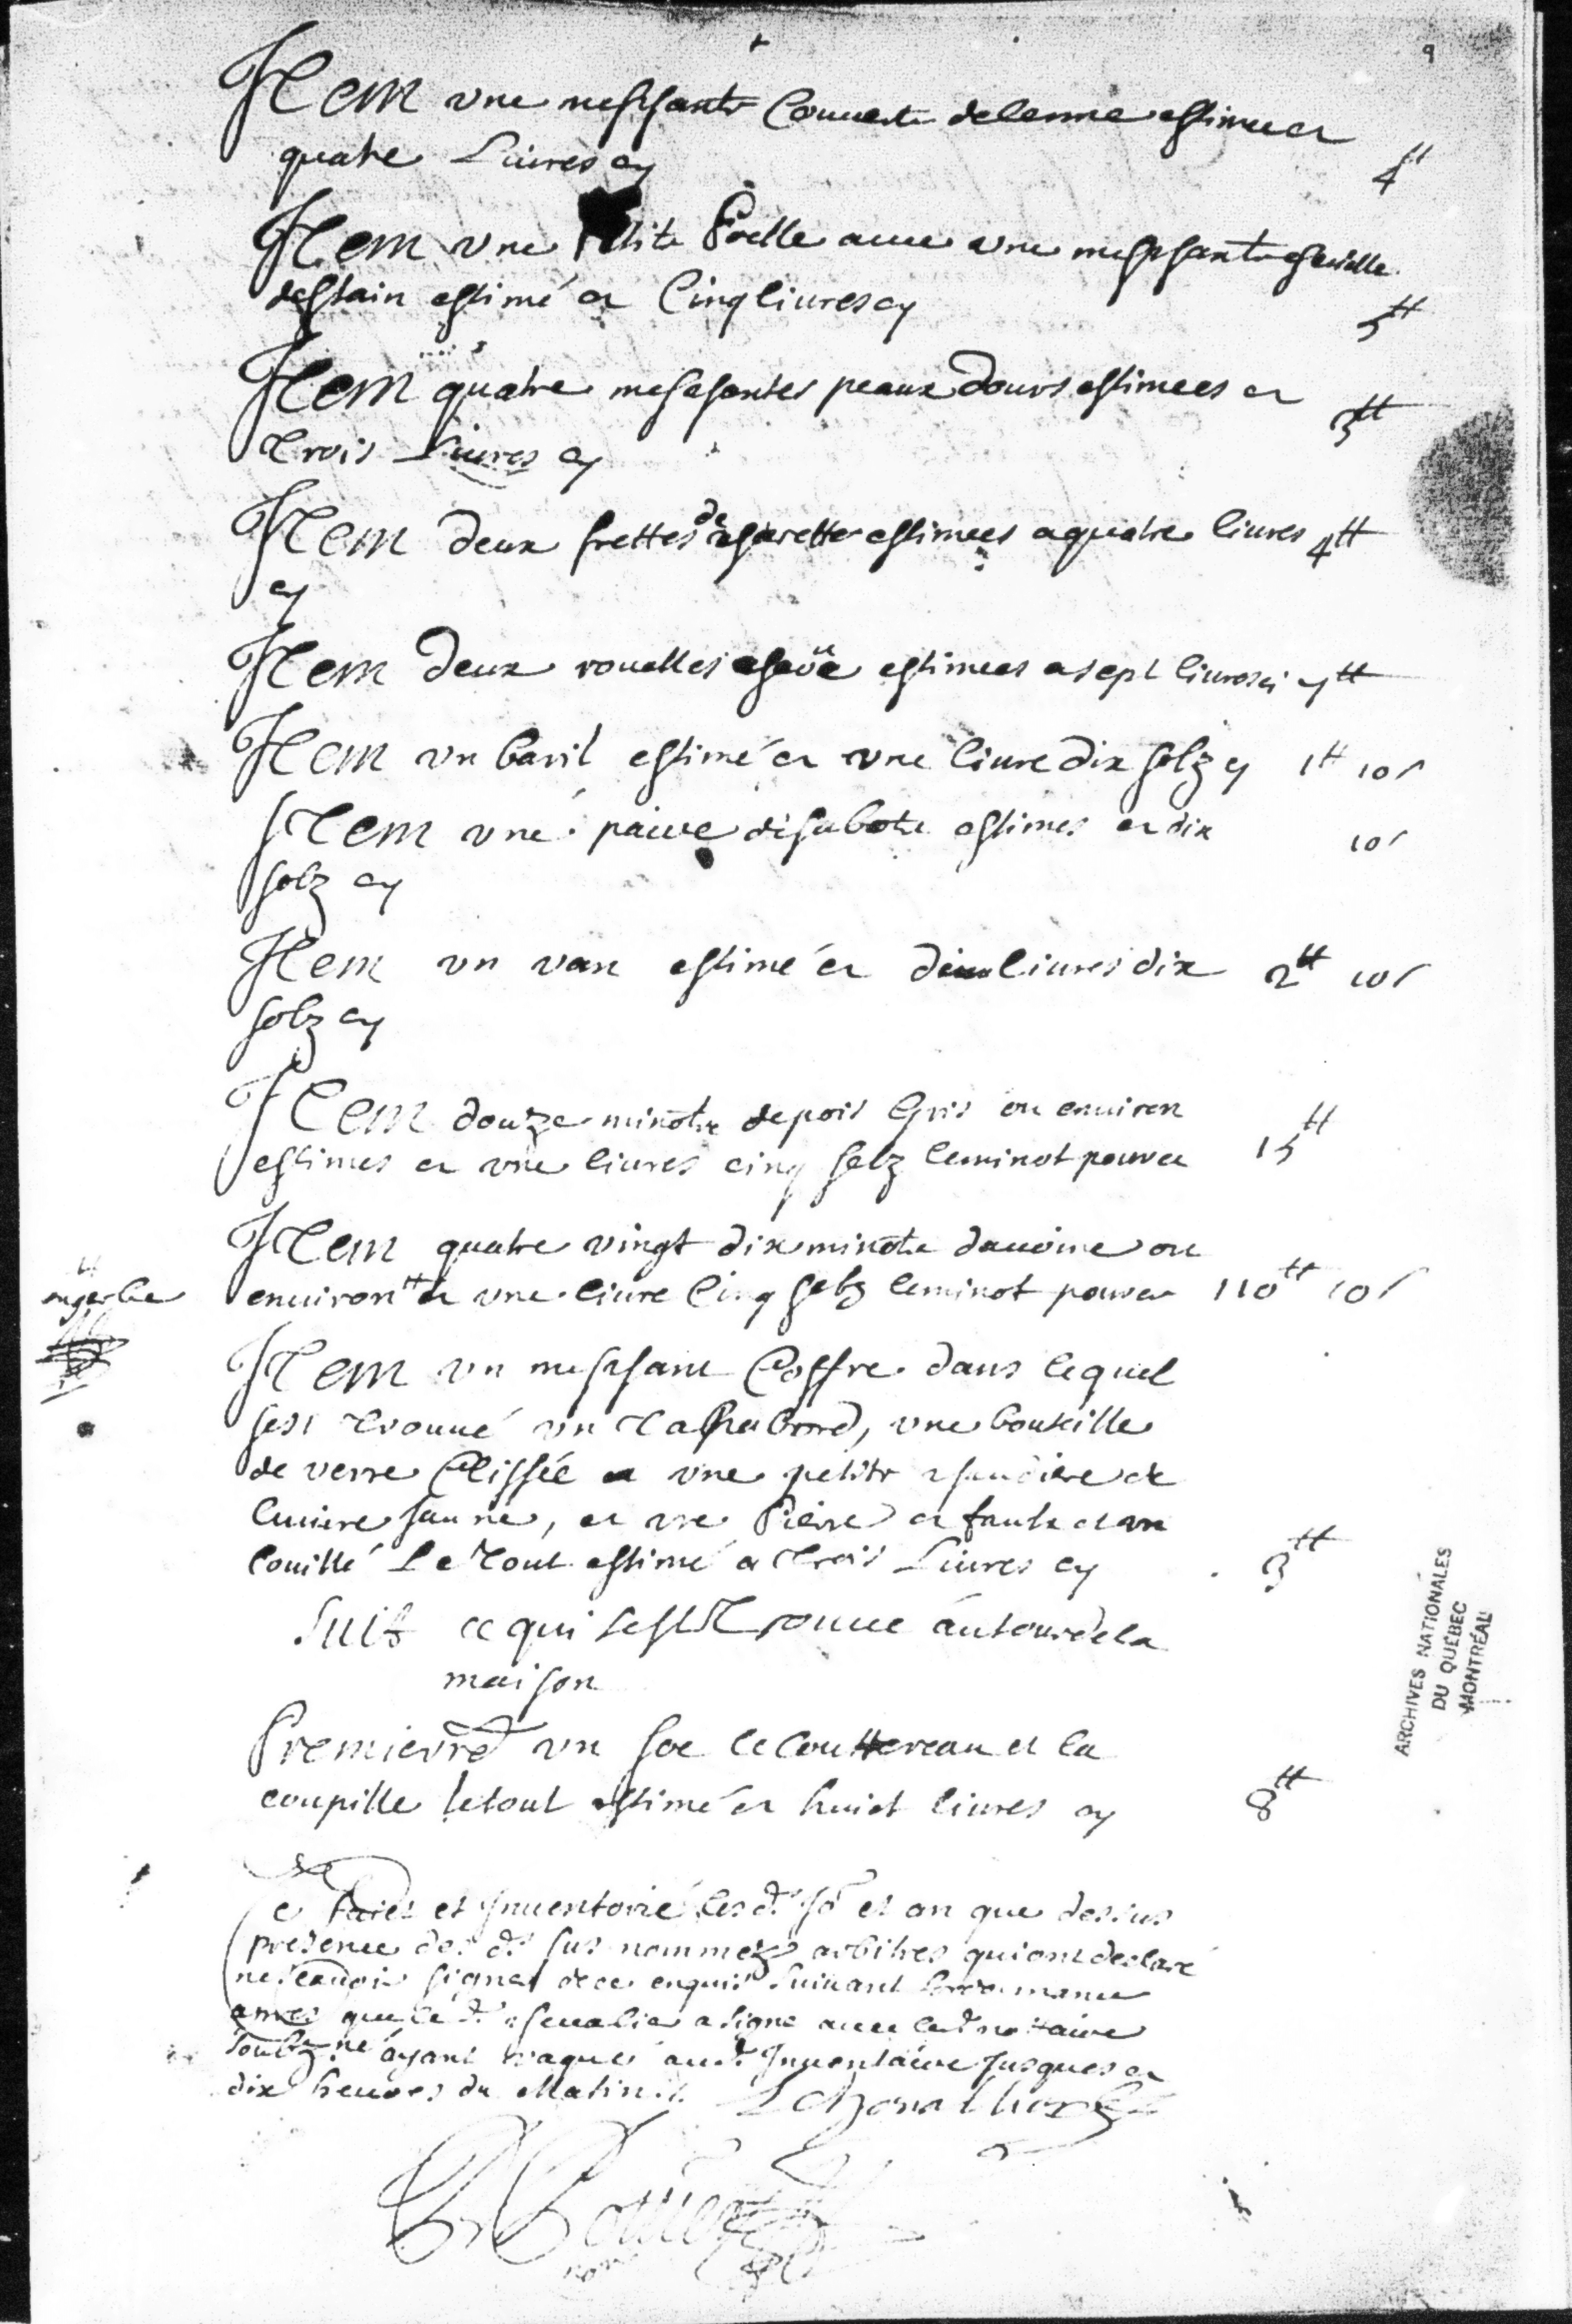 9
Item vne meschante Couuerte de lenne estimee a
quatre Liures cy 4tt
Item vne petite Poelle auec vne meschante escuelle
destain estimé a Cinq liures cy 5tt
Item quatre meschantes peaux Dours estimees a
Trois Liures cy 3tt
Item Deux frettes de charette estimees a quatre liures 4tt
cy
Item Deux rouelles estimees a sept liures ci 7tt
Item vn baril estimé a vne liure dix solz cy 1tt 10s
Item vne paire de sabots estimes a dix 10s
solz cy
Item vn van estimé a deux liures dix 2tt 10s
solz cy
Item douze minots de pois Gris ou enuiron
estimes a vne liures cinq solz le minot pour ce 15tt
Item quatre vingt dix minots dauoine ou
en gerbe
enuiron tt a vne liure Cinq solz le minot pour ce 110tt 10s
Item vn meschant Coffre dans lequel
sest trouué vn Tapabord, vne bouteille
de verre Clissée et vne petite chaudiere de
Cuiure jaune, et vne Pierre a faulx et vn
Couillé Le Tout estimé a Trois Liures cy 3tt
Suit ce qui sest Trouué autour de la
maison
Premieremt vn soc le Couttereau et la
coupille le tout estimé a huict liures cy 8tt
Ce faict et Inuentorié les d. jo et an que dessus
presence des d. sus nommez arbitres qui ont declaré
ne scauoir signer de ce enquis suiuant lordonnance
apres que le d. cheualier a signé auec led notaire
soubz.né ayant vaqué aud. Inuentaire jusques a
dix heures du Matin
ARCHIVES NATIONALES
DU QUÉBEC
MONTRÉAL